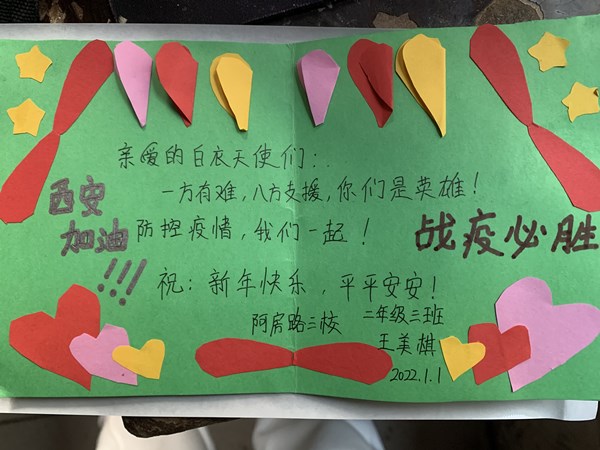 亲爱的白衣天使们:
一方有难,八方支援,你们是英雄!
防控疫情,我们一起!
祝:新年快乐,平平安安!
阿房路三校 二年级三班
王美棋
2022.1.1
西安
加油
!!!
战疫必胜